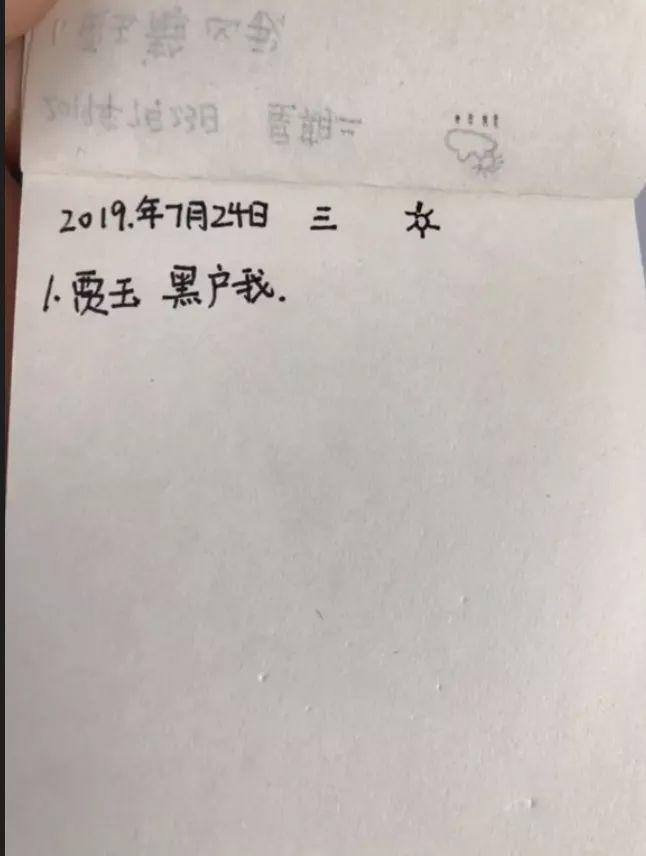 2019.年7月24日 三
1.贾玉 黑户我.